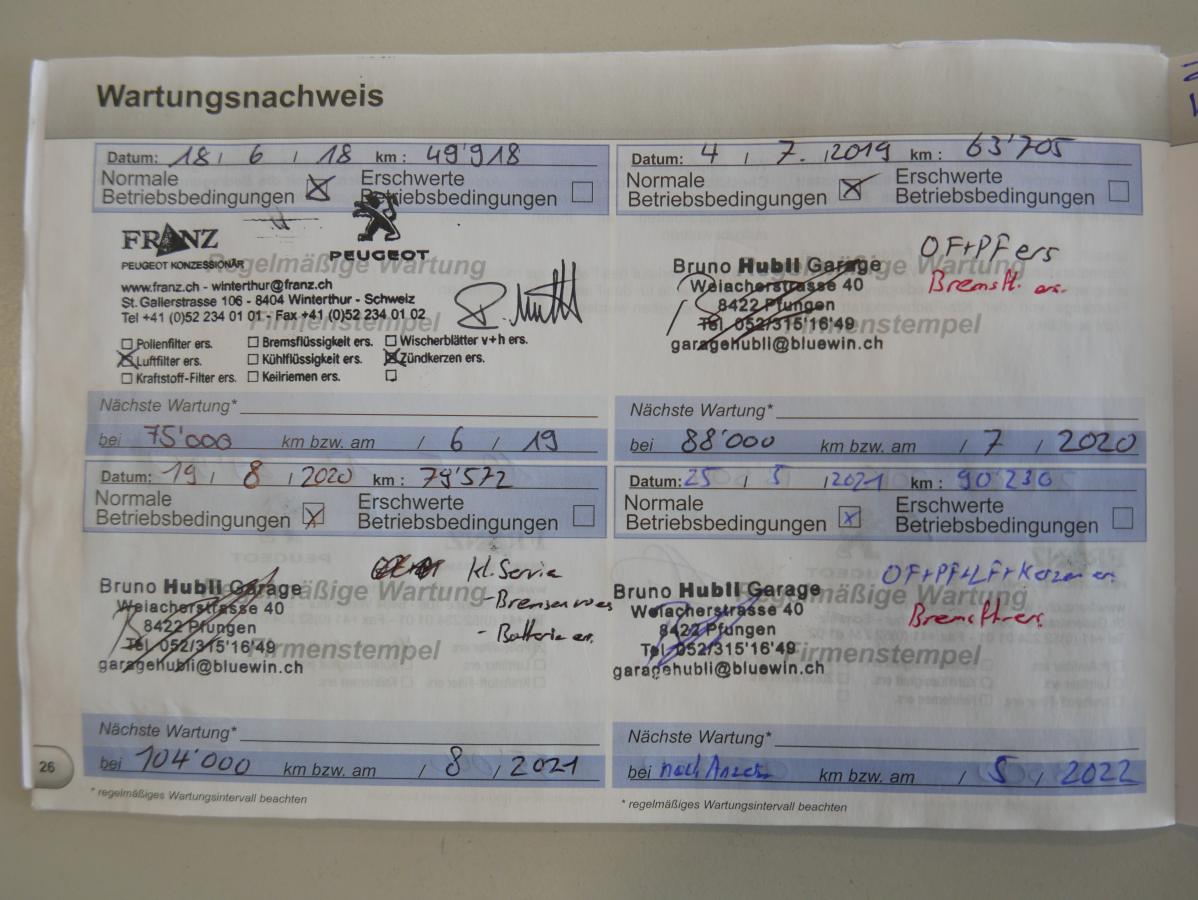 Wartungsnachweis
Datum: 18 / 6 / 18 km : 49'918
Normale Betriebsbedingungen
Erschwerte Betriebsbedingungen
FRANZ
PEUGEOT KONZESSIONÄR
PEUGEOT
Regelmäßige Wartung
www.franz.ch - winterthur@franz.ch
St. Gallerstrasse 106 - 8404 Winterthur - Schweiz
Tel +41 (0)52 234 01 01 - Fax +41 (0)52 234 01 02
Firmenstempel
Pollenfilter ers. Bremsflüssigkeit ers. Wischerblätter v+h ers.
Luftfilter ers. Kühlflüssigkeit ers. Zündkerzen ers.
Kraftstoff-Filter ers. Keilriemen ers.
Nächste Wartung*
bei 75'000 km bzw. am / 6 / 19
Datum: 4 / 7. / 2019 km : 63'705
Normale Betriebsbedingungen
Erschwerte Betriebsbedingungen
OF+PF ers
Bremsfl. ers.
Regelmäßige Wartung
Bruno Hubli Garage
Weiacherstrasse 40
8422 Pfungen
Tel 052/315'16'49
garagehubli@bluewin.ch
Firmenstempel
Nächste Wartung*
bei 88'000 km bzw. am / 7 / 2020
Datum: 19 / 8 / 2020 km : 79'572
Normale Betriebsbedingungen
Erschwerte Betriebsbedingungen
kl. Service
- Bremsen
- Batterie ers.
Regelmäßige Wartung
Bruno Hubli Garage
Weiacherstrasse 40
8422 Pfungen
Tel 052/315'16'49
garagehubli@bluewin.ch
Firmenstempel
Nächste Wartung*
bei 104'000 km bzw. am / 8 / 2021
* regelmäßiges Wartungsintervall beachten
Datum: 25 / 5 / 2021 km : 90'230
Normale Betriebsbedingungen
Erschwerte Betriebsbedingungen
OF+PF+LF+Kerzen ers
Regelmäßige Wartung
Bruno Hubli Garage
Weiacherstrasse 40
8422 Pfungen
Tel 052/315'16'49
garagehubli@bluewin.ch
Firmenstempel
Nächste Wartung*
bei nach Anzeige km bzw. am / 5 / 2022
* regelmäßiges Wartungsintervall beachten
26